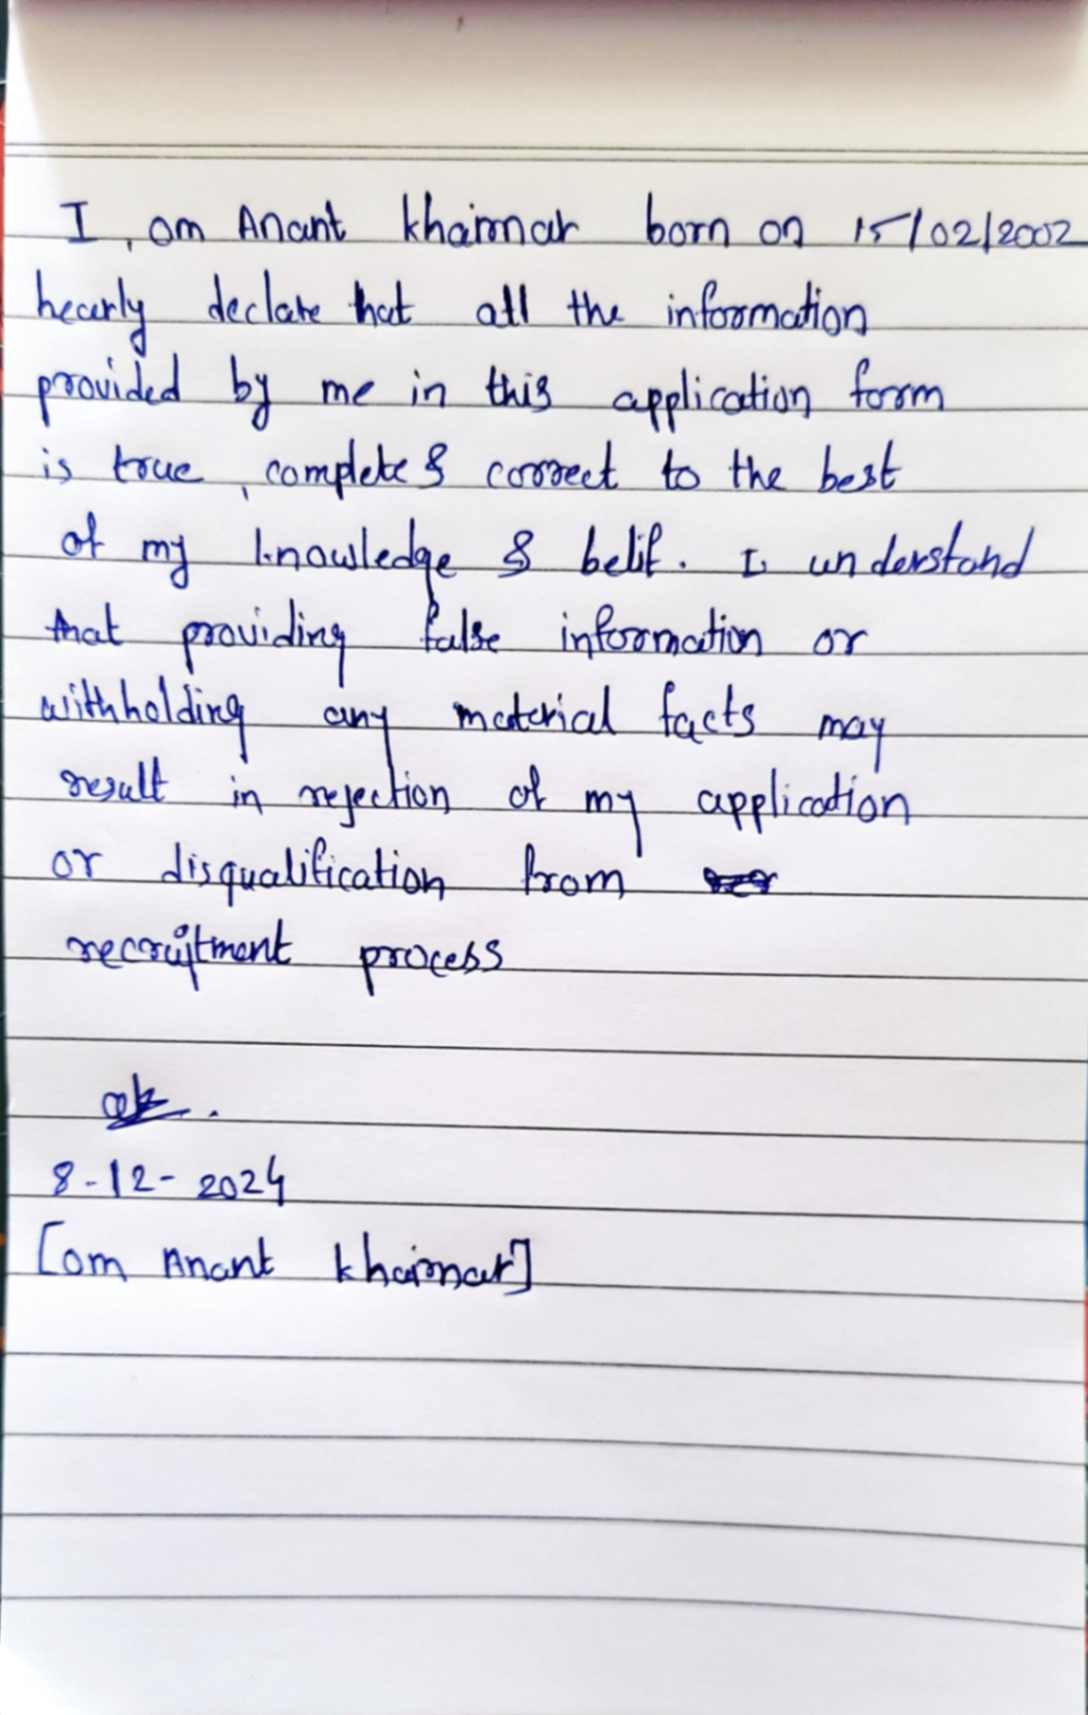 I, om Anant khairnar born on 15/02/2002
hearly declare that all the information
provided by me in this application form
is true, complete & correct to the best
of my knowledge & belif. I understand
that providing false information or
withholding any material facts may
result in rejection of my application
or disqualification from
recruitment process
8-12-2024
[om Anant khairnar]